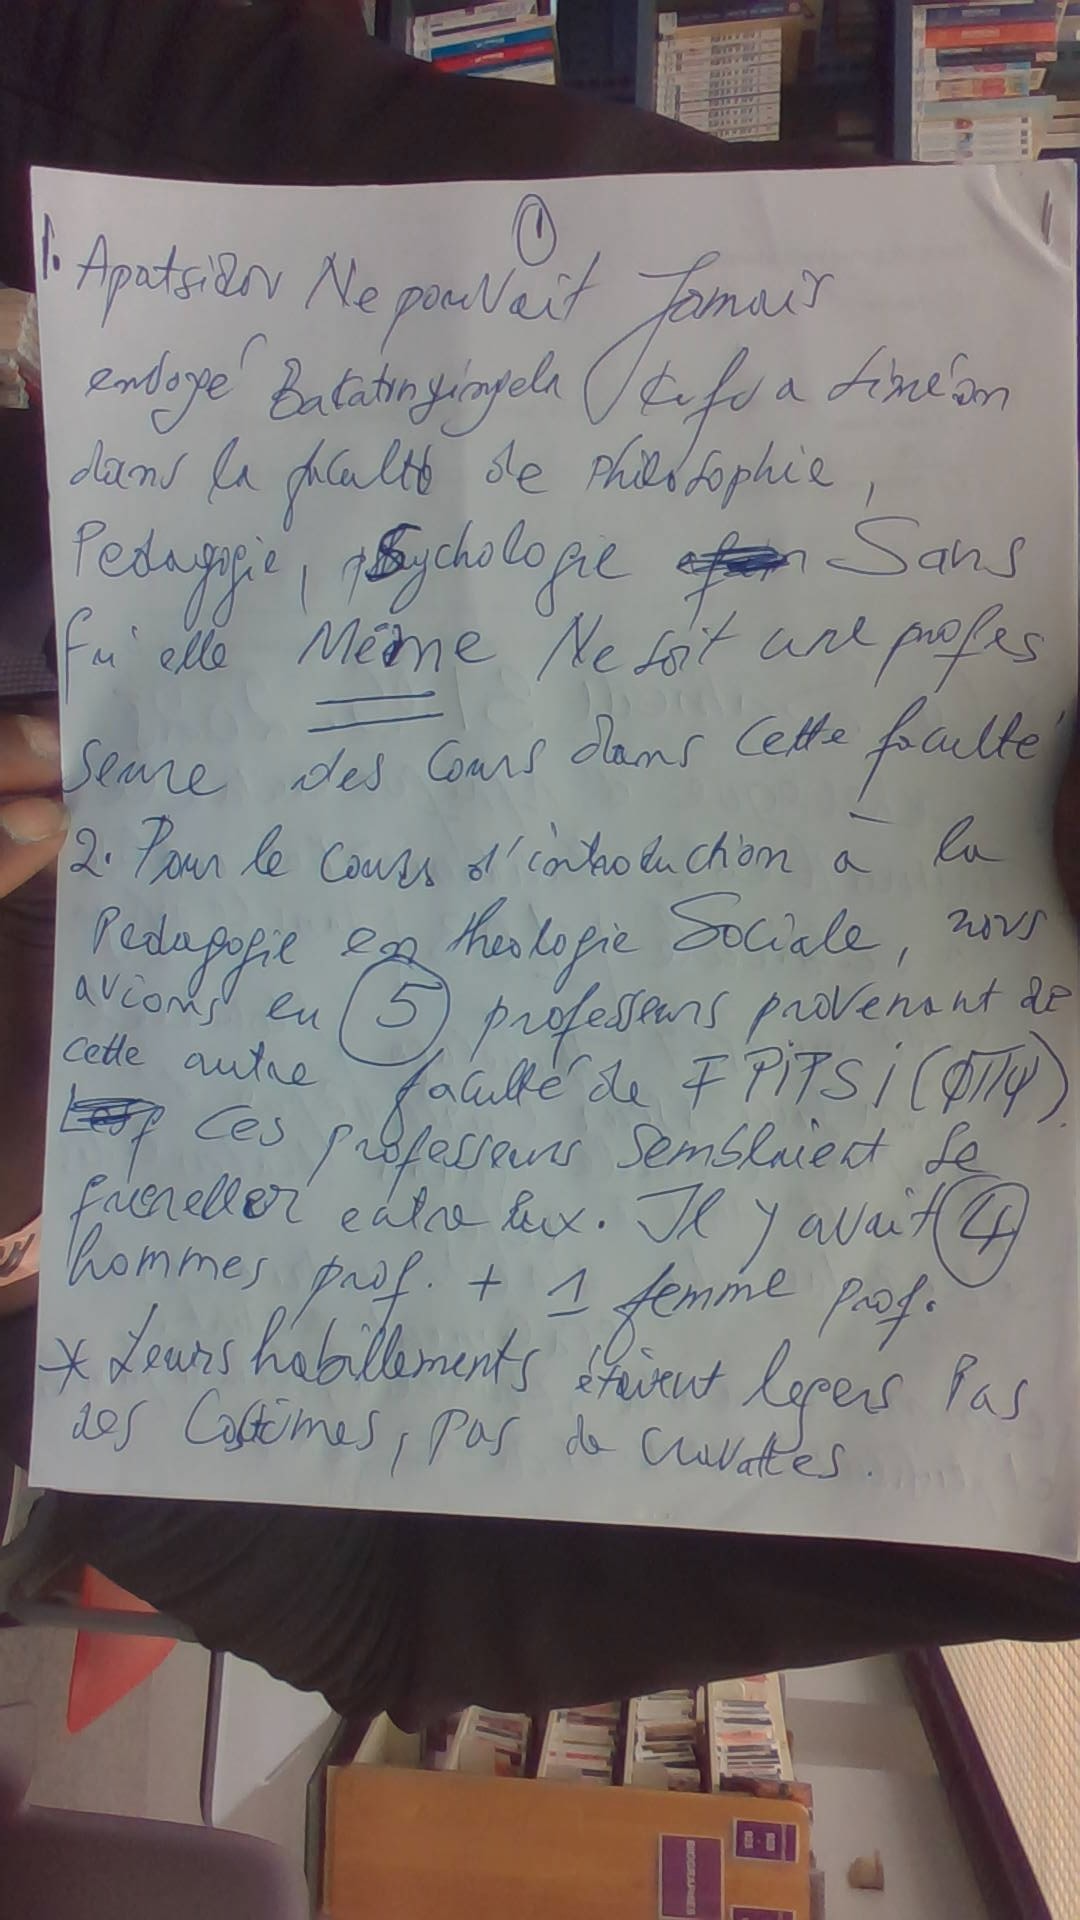 ①
1. Apatsidov Ne pouvait Jamais
envoyé Bakatunyingela Kafua Siméon
dans la faculté de Philosophie,
Pedagogie, psychologie Sans
qu'elle Même Ne soit une profes
seure des Cours dans Cette faculté
2. Pour le cours d'introduction à la
Pedagogie en theologie Sociale, nous
avions eu 5 professeurs provenant de
cette autre faculté de FPiPSi (ΦΠΨ).
Ces professeurs semblaient se
quereller entre eux. Il y avait 4
hommes prof. + 1 femme prof.
* Leurs habillements étaient legers Pas
des Costumes, pas de Cravattes.
BIOGRAPHIES